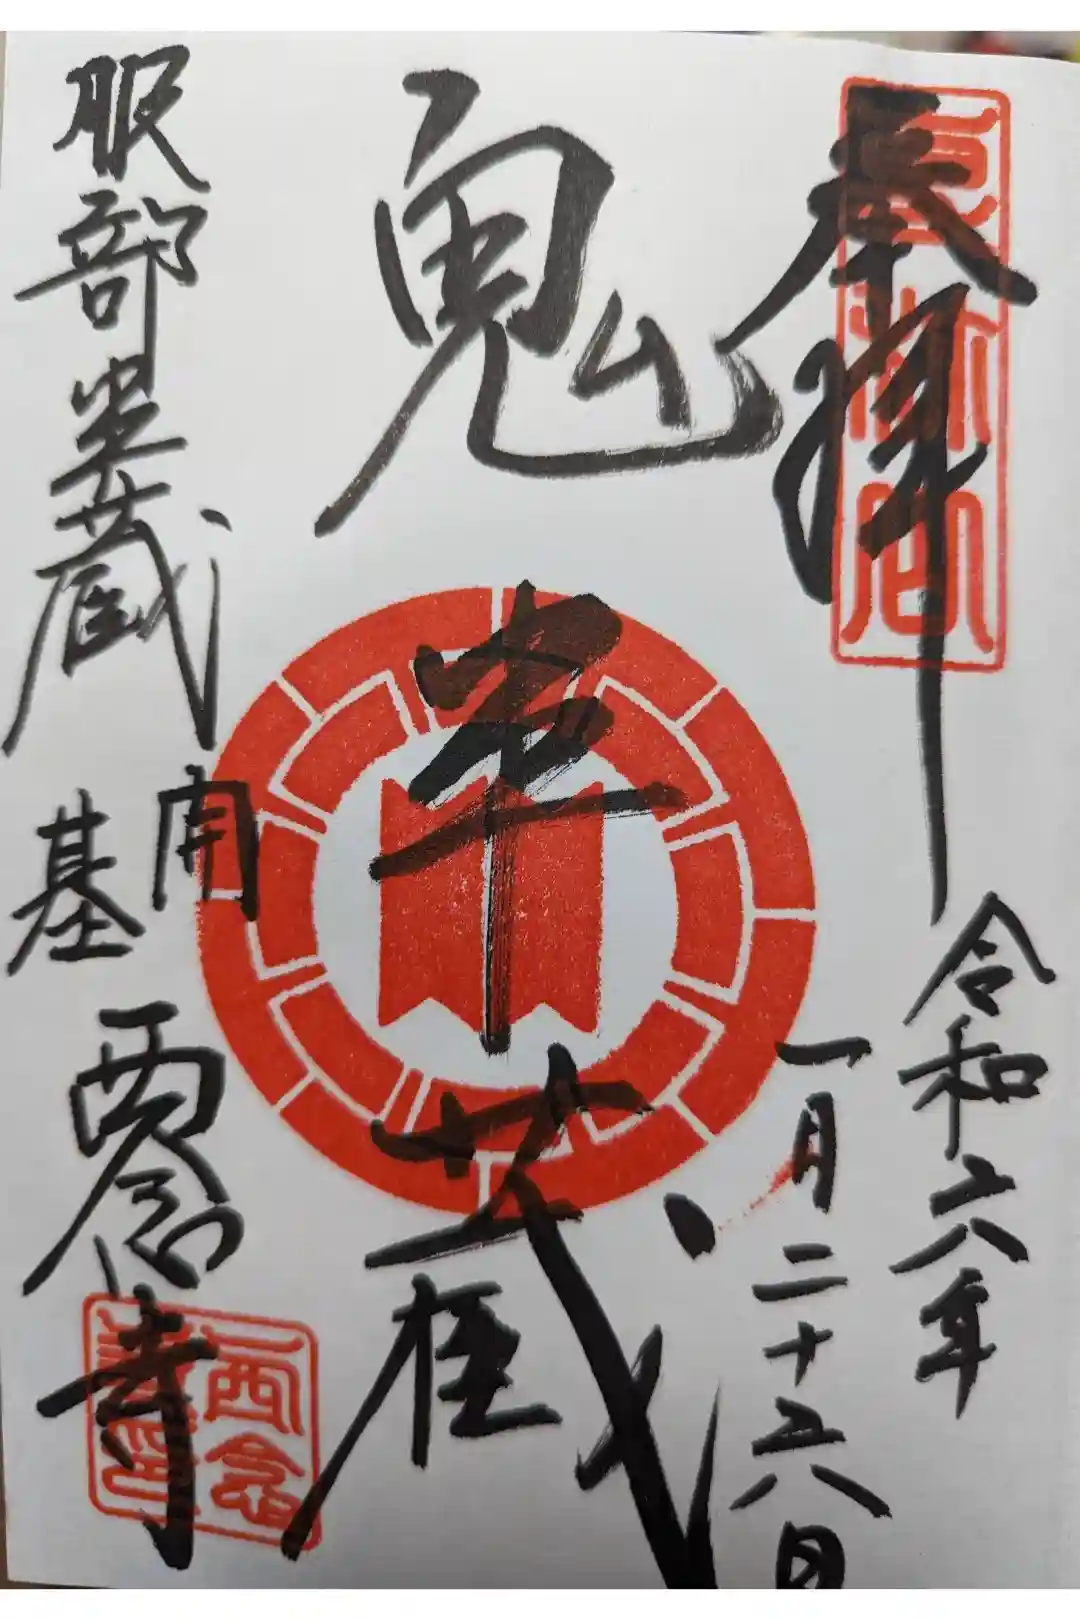 奉拝
令和六年
一月二十六日
鬼半蔵
服部半蔵
開基
西念寺
西念
寺印